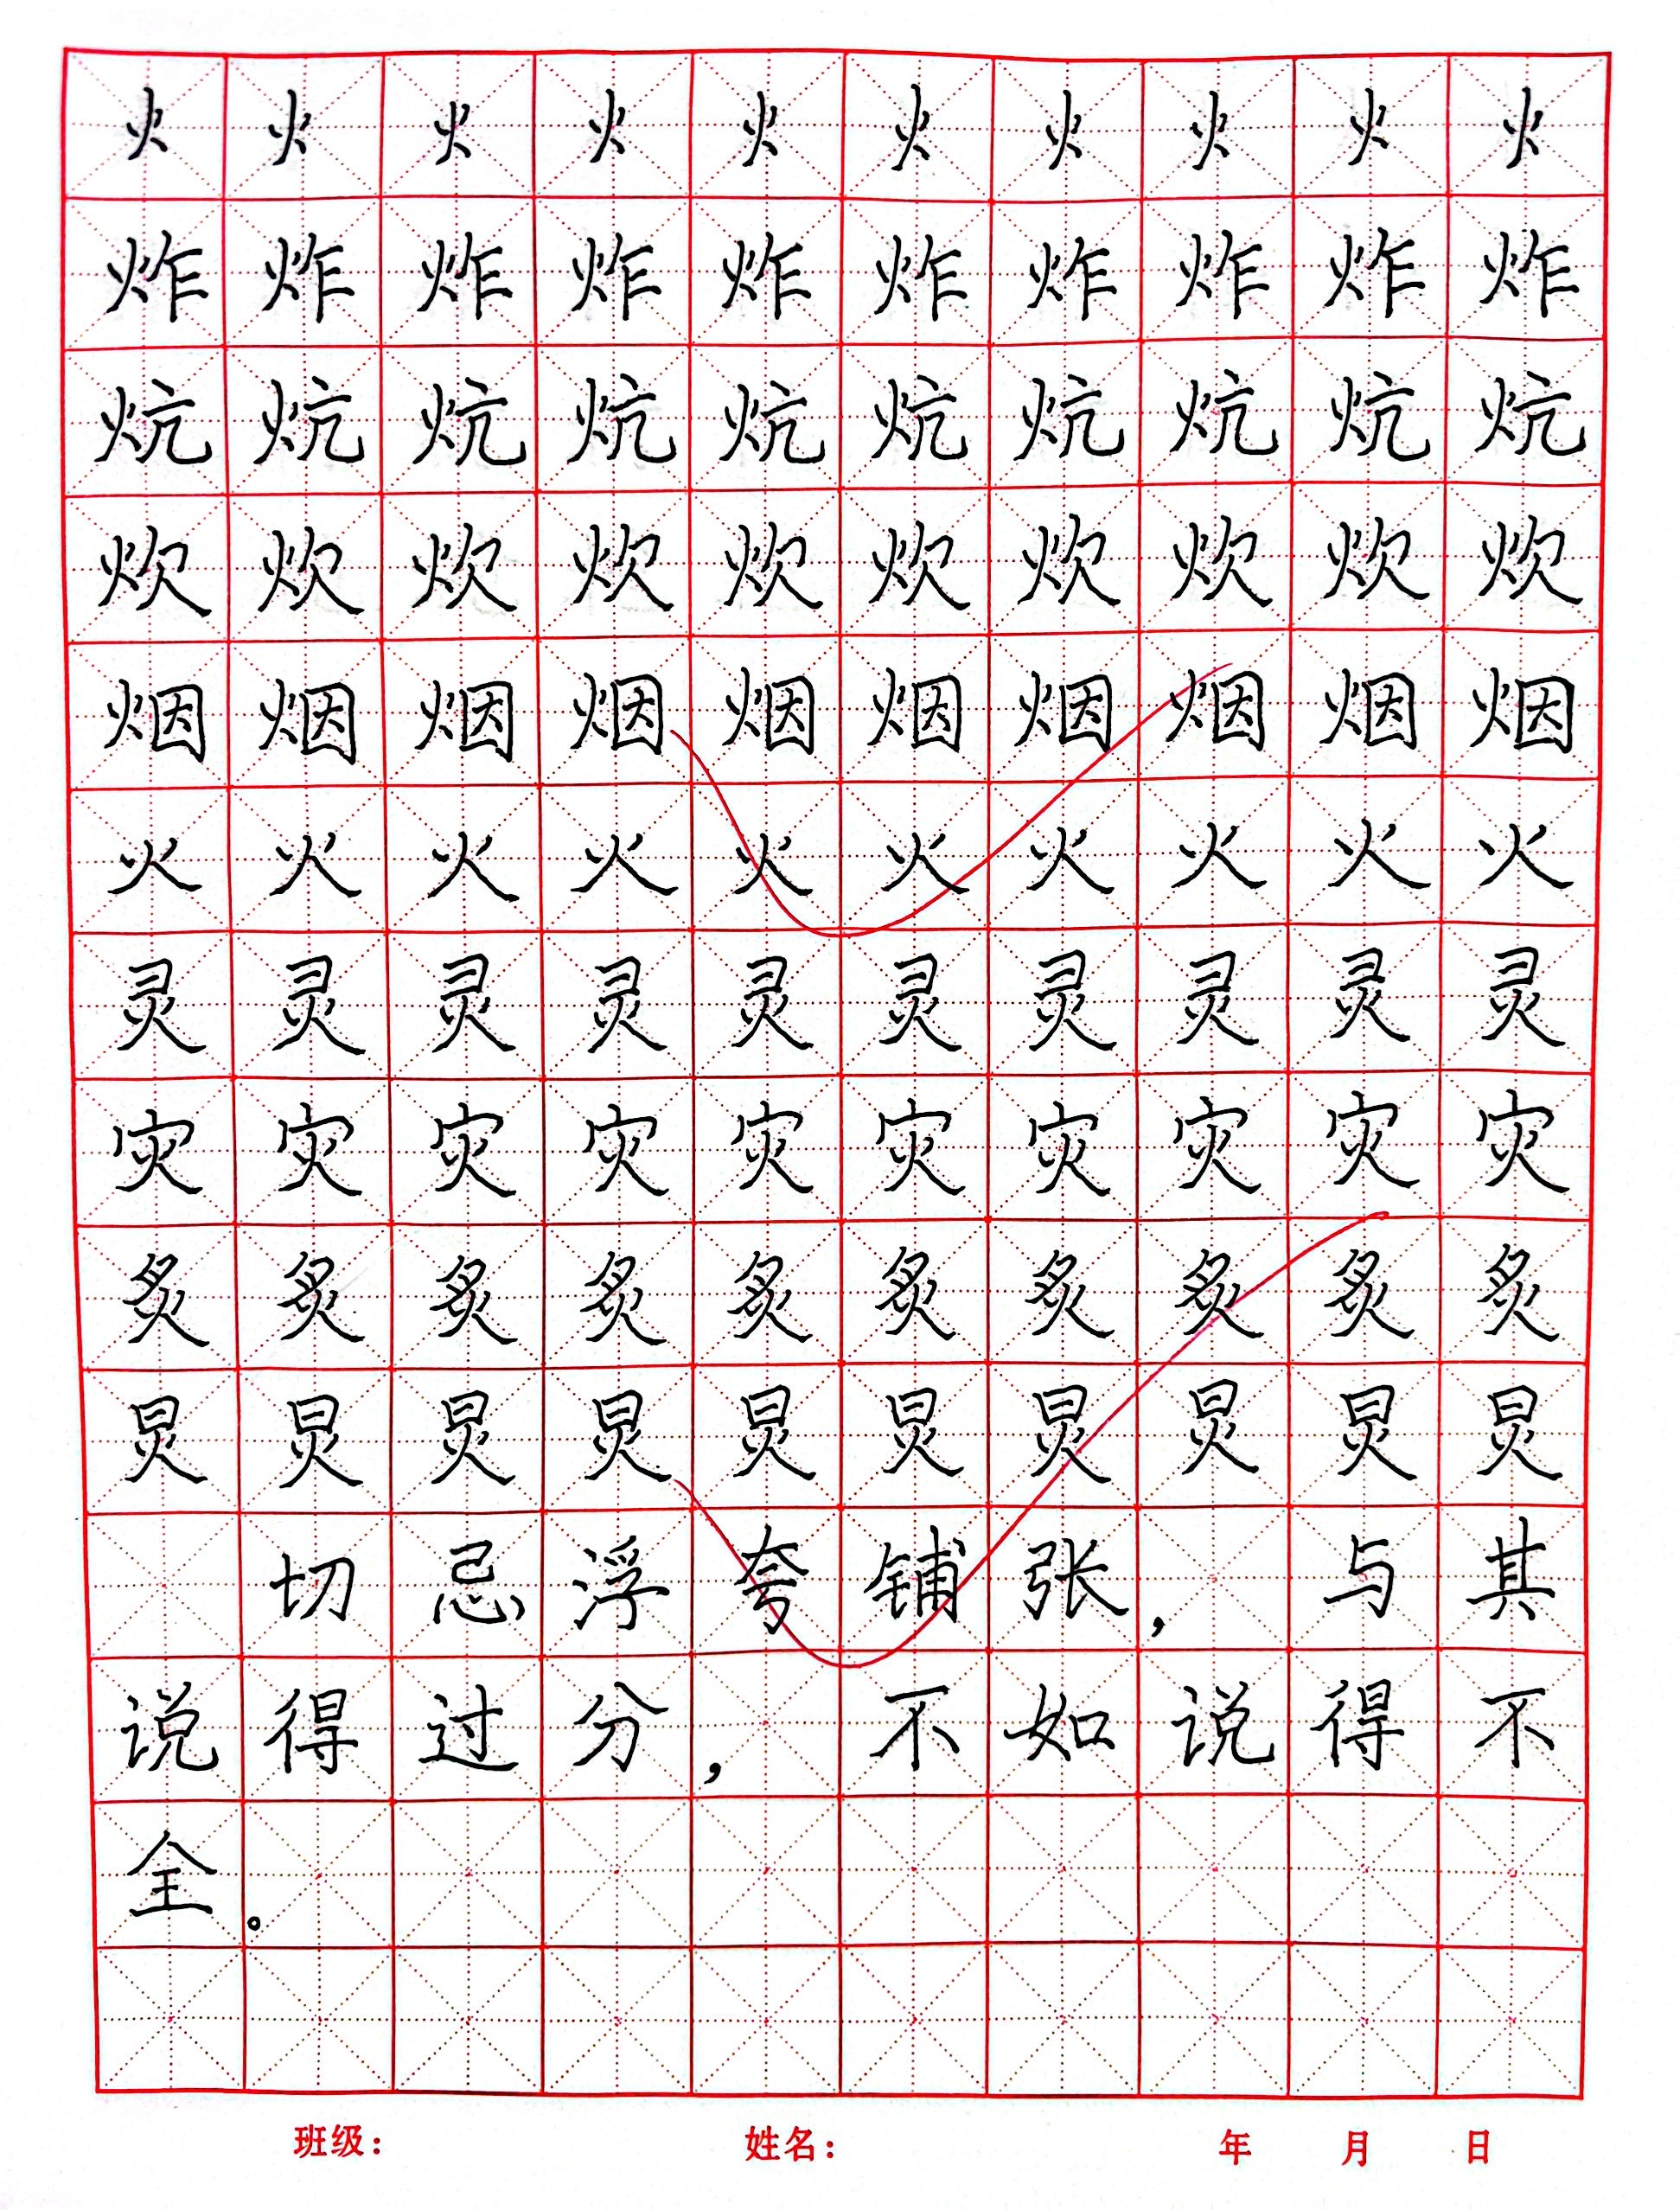 火火火火火火火火火火
炸炸炸炸炸炸炸炸炸炸
炕炕炕炕炕炕炕炕炕炕
炊炊炊炊炊炊炊炊炊炊
烟烟烟烟烟烟烟烟烟烟
火火火火火火火火火火
灵灵灵灵灵灵灵灵灵灵
灾灾灾灾灾灾灾灾灾灾
炙炙炙炙炙炙炙炙炙炙
炅炅炅炅炅炅炅炅炅炅
切忌浮夸铺张，与其
说得过分，不如说得不
全。
班级： 姓名： 年 月 日